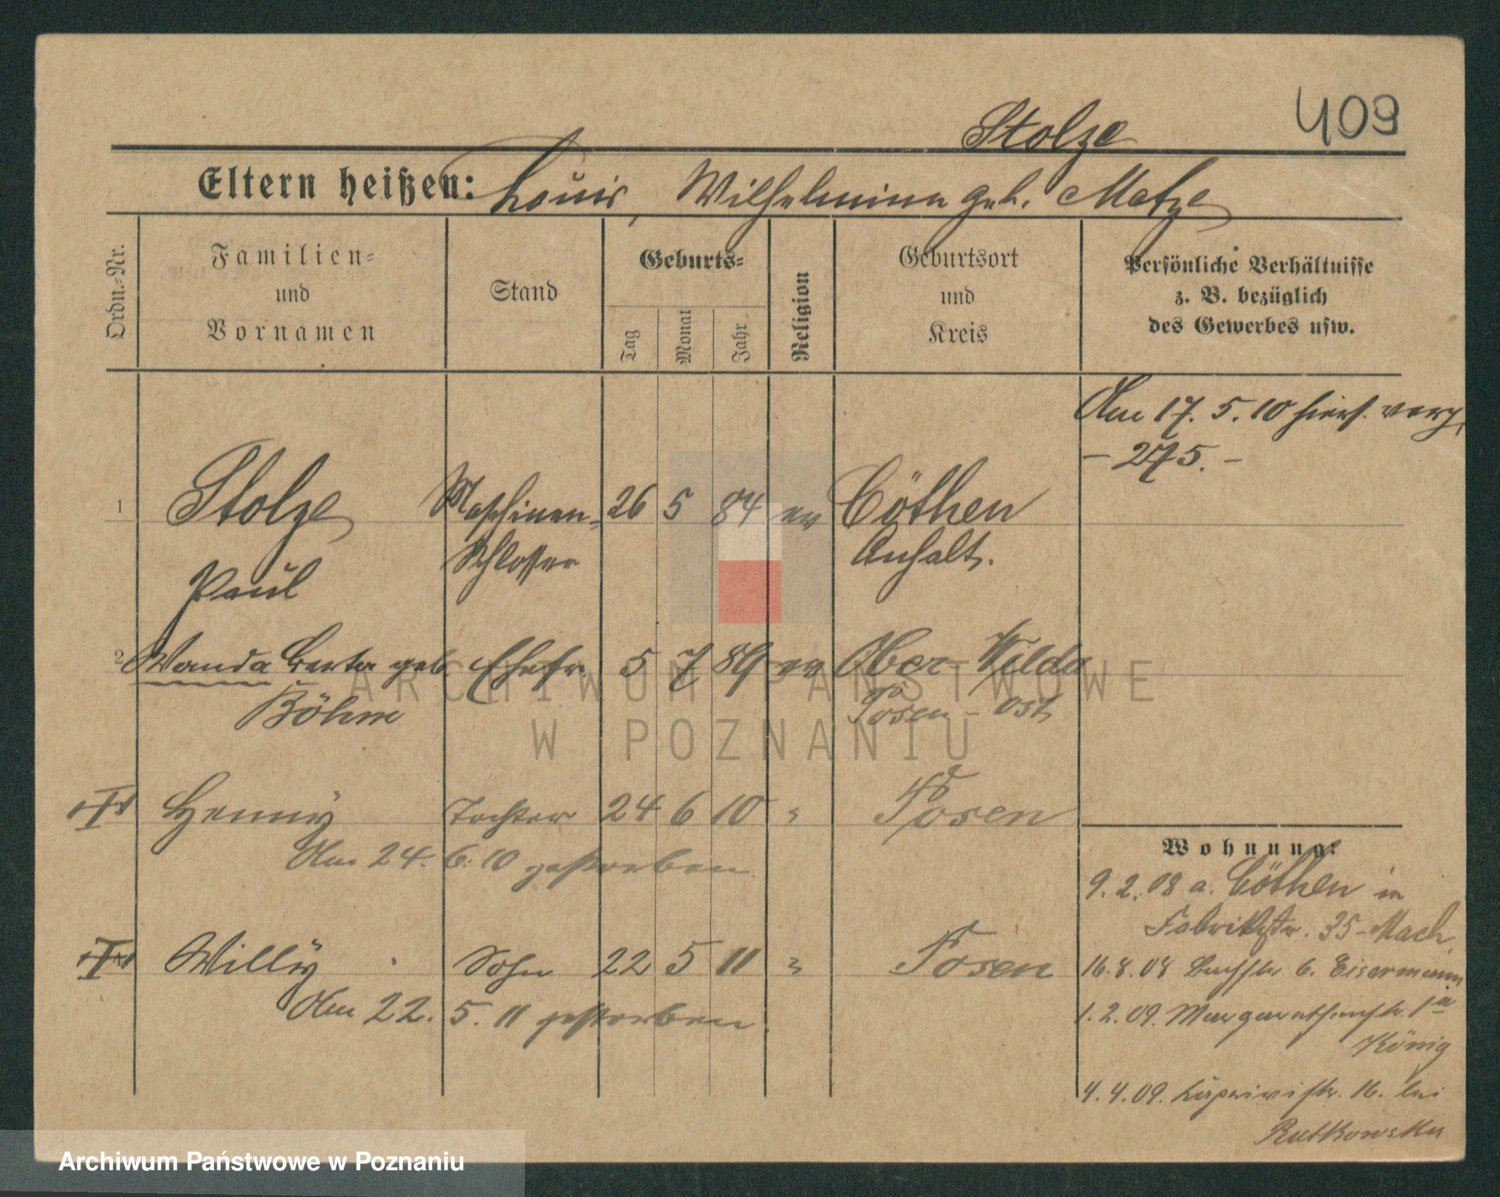 409
Stolze
Eltern heißen: Louis, Wilhelmine geb. Matze
Ordn.-Nr.
Familien-
und
Vornamen
Stand
Geburts-
Tag
Monat
Jahr
Religion
Geburtsort
und
Kreis
Persönliche Verhältnisse
z. B. bezüglich
des Gewerbes usw.
Am 17. 5. 10 hiers.
- 275. -
1 Stolze Maschinen- 26 5 84 ev Cöthen
Paul Schlosser Anhalt.
2 Wanda Berta geb Ehefr. 5 7 89 ev Ober Wilda
Böhme Posen - Ost
Henny Tochter 24 6 10 " Posen
Am 24. 6. 10 gestorben
Willy Sohn 22 5 11 " Posen
Am 22. 5. 11 gestorben
Wohnung:
9. 2. 08 a. Cöthen in
Fabrikstr. 35 - Mach
16. 8. 08 6. Eisermann
1. 2. 09. Margarethenstr. 1a
König
4. 4. 09. 16. bei
Rutkowska
ARCHIWUM PAŃSTWOWE
W POZNANIU
Archiwum Państwowe w Poznaniu